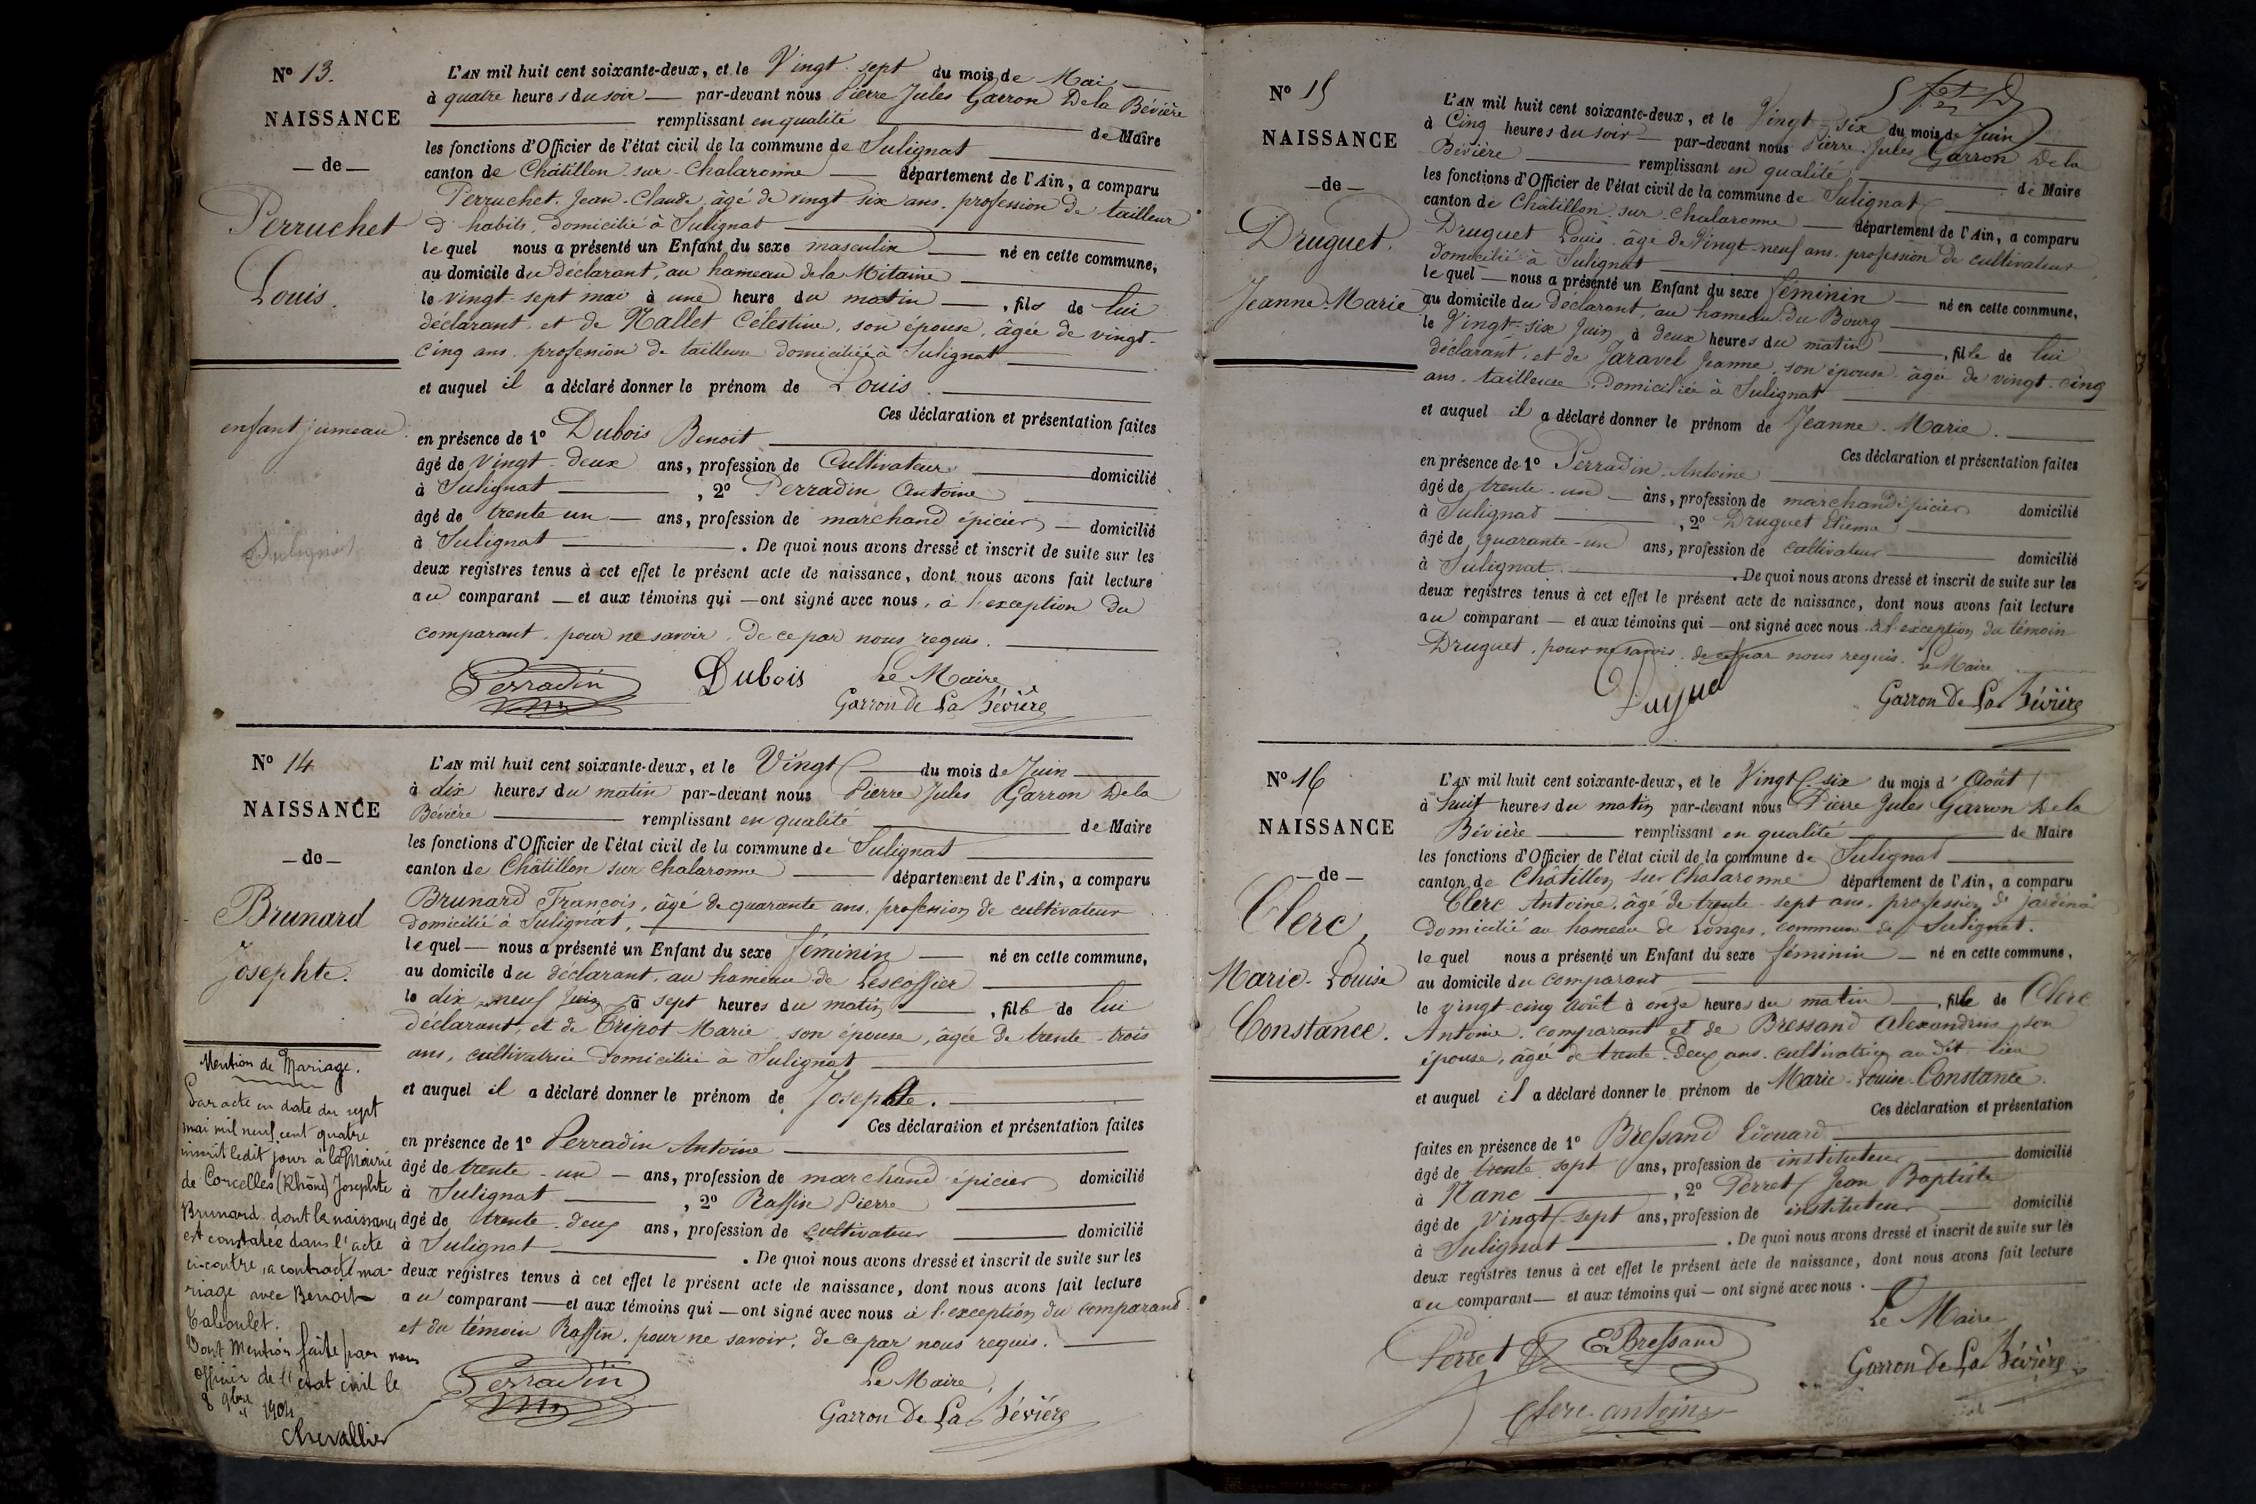 N° 13.
NAISSANCE
— de —
Perruchet
Louis.
enfant jumeau
L'AN mil huit cent soixante-deux, et le Vingt-sept du mois de Mai
à quatre heures du soir — par-devant nous Pierre Jules Garron De la Bévière
remplissant en qualité de Maire
les fonctions d'Officier de l'état civil de la commune de Sulignat
canton de Châtillon-sur-Chalaronne — département de l'Ain, a comparu
Perruchet Jean-Claude, âgé de vingt six ans, profession de tailleur
d'habits, domicilié à Sulignat
le quel nous a présenté un Enfant du sexe masculin — né en cette commune,
au domicile du déclarant, au hameau de la Mitaine
le vingt-sept mai à une heure du matin —, fils de lui
déclarant et de Mallet Célestine, son épouse, âgée de vingt-
cinq ans, profession de tailleuse domiciliée à Sulignat
et auquel il a déclaré donner le prénom de Louis.
Ces déclaration et présentation faites
en présence de 1° Dubois Benoit
âgé de vingt-deux ans, profession de Cultivateur domicilié
à Sulignat, 2° Perradin Antoine
âgé de trente un — ans, profession de marchand épicier — domicilié
à Sulignat. De quoi nous avons dressé et inscrit de suite sur les
deux registres tenus à cet effet le présent acte de naissance, dont nous avons fait lecture
au comparant — et aux témoins qui — ont signé avec nous, à l'exception du
comparant, pour ne savoir, de ce par nous requis.
Perradin Dubois Le Maire
Garron De La Bévière
N° 14
NAISSANCE
— de —
Brunard
Josephte.
Mention de Mariage.
Par acte en date du sept
mai mil neuf cent quatre
inscrit ledit jour à la Mairie
de Corcelles (Rhône) Josephte
Brunard dont la naissance
est constatée dans l'acte
ci-contre, a contracté ma-
riage avec Benoit
Dont Mention faite par nous
officier de l'état civil le
8 9bre 1904
Chevallier
L'AN mil huit cent soixante-deux, et le Vingt — du mois de Juin
à dix heures du matin par-devant nous Pierre Jules Garron De la
Bévière remplissant en qualité de Maire
les fonctions d'Officier de l'état civil de la commune de Sulignat
canton de Châtillon sur Chalaronne — département de l'Ain, a comparu
Brunard François, âgé de quarante ans, profession de cultivateur
domicilié à Sulignat,
le quel — nous a présenté un Enfant du sexe féminin — né en cette commune,
au domicile du déclarant, au hameau de Lescoffier
le dix-neuf Juin à sept heures du matin, fille de lui
déclarant, et de Tripot Marie, son épouse, âgée de trente-trois
ans, cultivatrice domiciliée à Sulignat
et auquel il a déclaré donner le prénom de Josephte.
Ces déclaration et présentation faites
en présence de 1° Perradin Antoine
âgé de trente-un — ans, profession de marchand épicier domicilié
à Sulignat, 2° Raffin Pierre
âgé de trente-deux ans, profession de cultivateur domicilié
à Sulignat. De quoi nous avons dressé et inscrit de suite sur les
deux registres tenus à cet effet le présent acte de naissance, dont nous avons fait lecture
au comparant — et aux témoins qui — ont signé avec nous à l'exception du comparant
et du témoin Raffin, pour ne savoir, de ce par nous requis.
Perradin Le Maire
Garron De La Bévière
N° 15
NAISSANCE
— de —
Druguet.
Jeanne-Marie
L'AN mil huit cent soixante-deux, et le Vingt-six du mois de Juin
à Cinq heures du soir — par-devant nous Pierre Jules Garron De la
Bévière remplissant en qualité de Maire
les fonctions d'Officier de l'état civil de la commune de Sulignat
canton de Châtillon-sur-Chalaronne — département de l'Ain, a comparu
Druguet Louis, âgé de Vingt-neuf ans, profession de cultivateur
domicilié à Sulignat
le quel — nous a présenté un Enfant du sexe féminin — né en cette commune,
au domicile du déclarant, au hameau du Bourg
le Vingt-six Juin à deux heures du matin, fille de lui
déclarant, et de Jaravel Jeanne, son épouse âgée de vingt-cinq
ans, tailleuse, domiciliée à Sulignat
et auquel il a déclaré donner le prénom de Jeanne-Marie.
Ces déclaration et présentation faites
en présence de 1° Perradin Antoine
âgé de trente-un — ans, profession de marchand épicier domicilié
à Sulignat, 2° Druguet Etienne
âgé de quarante-un ans, profession de cultivateur domicilié
à Sulignat. De quoi nous avons dressé et inscrit de suite sur les
deux registres tenus à cet effet le présent acte de naissance, dont nous avons fait lecture
au comparant — et aux témoins qui — ont signé avec nous à l'exception du témoin
Druguet, pour ne savoir, de ce par nous requis. Le Maire
Garron De La Bévière
N° 16
NAISSANCE
— de —
Clerc,
Marie-Louise
Constance.
L'AN mil huit cent soixante-deux, et le Vingt-six du mois d'Août
à huit heures du matin par-devant nous Pierre Jules Garron De la
Bévière remplissant en qualité de Maire
les fonctions d'Officier de l'état civil de la commune de Sulignat
canton de Châtillon sur Chalaronne département de l'Ain, a comparu
Clerc Antoine, âgé de trente-sept ans, profession de
Domicilié au hameau de Longes, commune de Sulignat.
le quel nous a présenté un Enfant du sexe féminin — né en cette commune,
au domicile du comparant
le vingt-cinq Août à onze heures du matin, fille de Clerc
Antoine, comparant et de Bressand Alexandrine, son
épouse, âgée de trente-deux ans, cultivatrice au dit lieu
et auquel il a déclaré donner le prénom de Marie-Louise-Constance.
Ces déclaration et présentation
faites en présence de 1° Bressand Edouard
âgé de trente-sept ans, profession de instituteur domicilié
à Nanc, 2° Perret Jean Baptiste
âgé de vingt-sept ans, profession de instituteur domicilié
à Sulignat. De quoi nous avons dressé et inscrit de suite sur les
deux registres tenus à cet effet le présent acte de naissance, dont nous avons fait lecture
au comparant — et aux témoins qui — ont signé avec nous.
Le Maire
Perret Ed Bressand
Garron De La Bévière
Clerc antoine